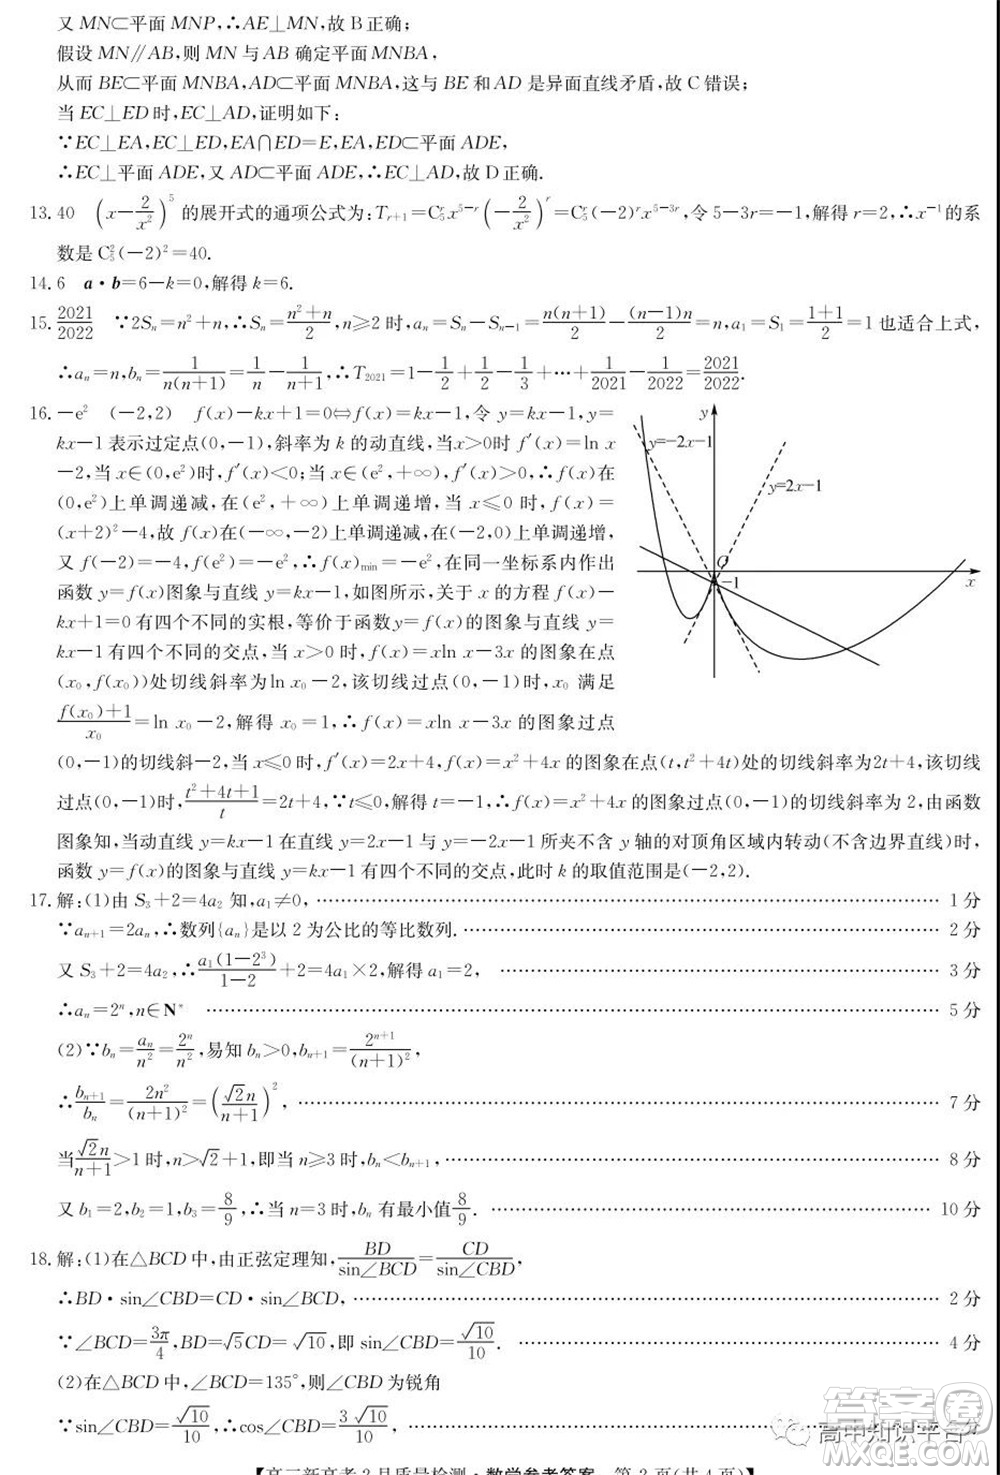 又 MN⊂平面 MNP,∴AE⊥MN,故 B 正确;
假设 MN∥AB,则 MN 与 AB 确定平面 MNBA,
从而 BE⊂平面 MNBA,AD⊂平面 MNBA,这与 BE 和 AD 是异面直线矛盾,故 C 错误;
当 EC⊥ED 时,EC⊥AD,证明如下:
∵EC⊥EA,EC⊥ED,EA∩ED=E,ED⊂平面 ADE,
∴EC⊥平面 ADE,又 AD⊂平面 ADE,∴EC⊥AD,故 D 正确.
13. 40 (x−2/x²)⁵ 的展开式的通项公式为:T_{r+1}=C₅^r x^{5−r}(−2/x²)^r=C₅^r(−2)^r x^{5−3r},令 5−3r=−1,解得 r=2,∴x⁻¹ 的系
数是 C₅²(−2)²=40.
14. 6 a·b=6−k=0,解得 k=6.
15. 2021/2022 ∵2Sₙ=n²+n,∴Sₙ=(n²+n)/2,n≥2 时,aₙ=Sₙ−Sₙ₋₁=n(n+1)/2−(n−1)n/2=n,a₁=S₁=(1+1)/2=1 也适合上式,
∴aₙ=n,bₙ=1/(n(n+1))=1/n−1/(n+1),∴T₂₀₂₁=1−1/2+1/2−1/3+…+1/2021−1/2022=2021/2022.
16. −e² (−2,2) f(x)−kx+1=0⇔f(x)=kx−1,令 y=kx−1,y=
kx−1 表示过定点(0,−1),斜率为 k 的动直线,当x>0时 f′(x)=ln x
−2,当 x∈(0,e²)时,f′(x)<0;当x∈(e²,+∞),f′(x)>0,∴f(x)在
(0,e²)上单调递减,在(e²,+∞)上单调递增,当 x≤0 时,f(x)=
(x+2)²−4,故 f(x)在(−∞,−2)上单调递减,在(−2,0)上单调递增,
又 f(−2)=−4,f(e²)=−e²,∴f(x)min=−e²,在同一坐标系内作出
函数 y=f(x)图象与直线 y=kx−1,如图所示,关于 x 的方程 f(x)−
kx+1=0 有四个不同的实根,等价于函数y=f(x)的图象与直线 y=
kx−1 有四个不同的交点,当 x>0 时,f(x)=xln x−3x 的图象在点
(x₀,f(x₀))处切线斜率为ln x₀−2,该切线过点(0,−1)时,x₀ 满足
(f(x₀)+1)/x₀=ln x₀−2,解得 x₀=1,∴f(x)=xln x−3x 的图象过点
(0,−1)的切线斜−2,当 x≤0 时,f′(x)=2x+4,f(x)=x²+4x 的图象在点(t,t²+4t)处的切线斜率为2t+4,该切线
过点(0,−1)时,(t²+4t+1)/t=2t+4,∵t≤0,解得 t=−1,∴f(x)=x²+4x 的图象过点(0,−1)的切线斜率为 2,由函数
图象知,当动直线 y=kx−1 在直线 y=2x−1 与 y=−2x−1 所夹不含 y 轴的对顶角区域内转动(不含边界直线)时,
函数 y=f(x)的图象与直线 y=kx−1 有四个不同的交点,此时 k 的取值范围是(−2,2).
y
y=−2x−1
y=2x−1
O
−1
x
17. 解:(1)由 S₃+2=4a₂ 知,a₁≠0, …… 1 分
∵aₙ₊₁=2aₙ,∴数列{aₙ}是以 2 为公比的等比数列. …… 2 分
又 S₃+2=4a₂,∴a₁(1−2³)/(1−2)+2=4a₁×2,解得 a₁=2, …… 3 分
∴aₙ=2ⁿ,n∈N* …… 5 分
(2)∵bₙ=aₙ/n²=2ⁿ/n²,易知 bₙ>0,bₙ₊₁=2ⁿ⁺¹/(n+1)²,
∴bₙ₊₁/bₙ=2n²/(n+1)²=(√2n/(n+1))², …… 7 分
当√2n/(n+1)>1 时,n>√2+1,即当 n≥3 时,bₙ<bₙ₊₁, …… 8 分
又 b₁=2,b₂=1,b₃=8/9,∴当 n=3 时,bₙ 有最小值8/9. …… 10 分
18. 解:(1)在△BCD 中,由正弦定理知,BD/sin∠BCD=CD/sin∠CBD,
∴BD·sin∠CBD=CD·sin∠BCD, …… 2 分
∵∠BCD=3π/4,BD=√5CD=√10,即 sin∠CBD=√10/10. …… 4 分
(2)在△BCD 中,∠BCD=135°,则∠CBD 为锐角
∵sin∠CBD=√10/10,∴cos∠CBD=3√10/10, …… 分
高中知识平台
答案圈
MXQE.COM
【高三新高考 3 月质量检测·数学参考答案 第 2 页(共 4 页)】